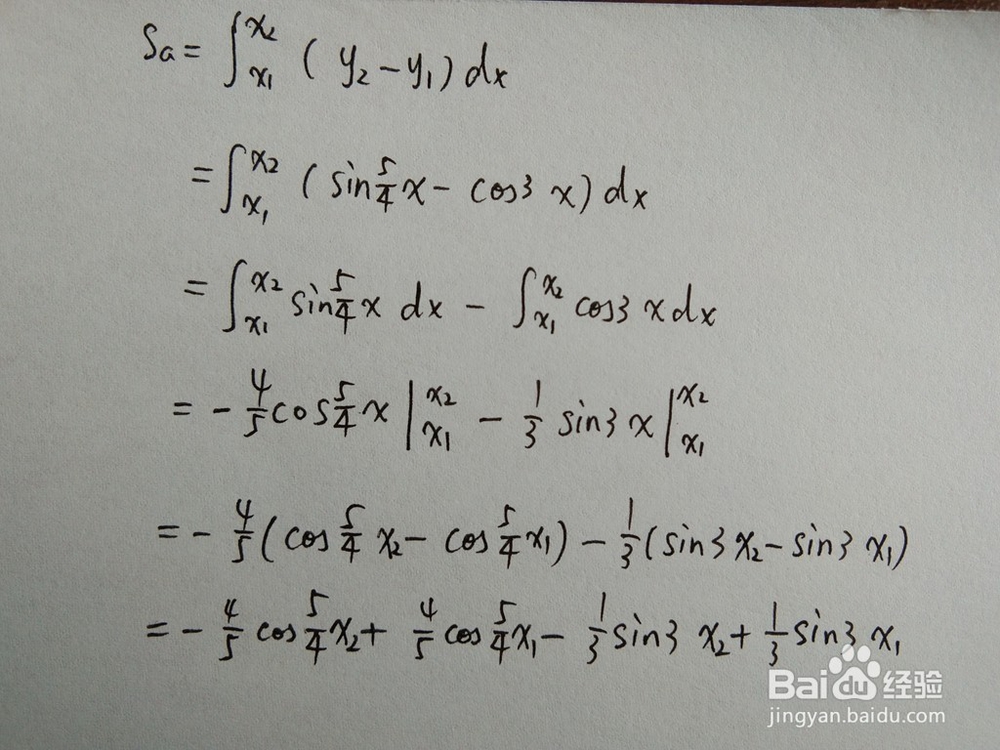 Sa = ∫_{x₁}^{x₂} (y₂ - y₁) dx
= ∫_{x₁}^{x₂} (sin 5/4 x - cos3x) dx
= ∫_{x₁}^{x₂} sin 5/4 x dx - ∫_{x₁}^{x₂} cos3x dx
= - 4/5 cos 5/4 x |_{x₁}^{x₂} - 1/3 sin3x |_{x₁}^{x₂}
= - 4/5 (cos 5/4 x₂ - cos 5/4 x₁) - 1/3 (sin3x₂ - sin3x₁)
= - 4/5 cos 5/4 x₂ + 4/5 cos 5/4 x₁ - 1/3 sin3x₂ + 1/3 sin3x₁
Baidu经验
jingyan.baidu.com